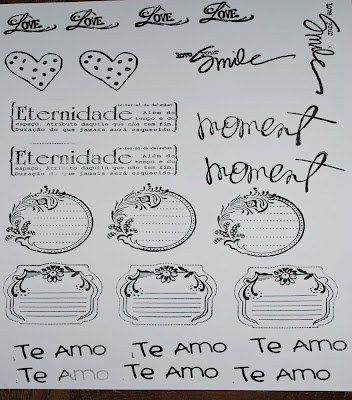 Love Love Love Love
love your Smile
love your Smile
{e-ter-ni-da-de}subst
Eternidade Além do tempo e do
espaço. Atributo daquilo que não tem fim.
Duração do que jamais será esquecido
moment
{e-ter-ni-da-de}subst
Eternidade Além do tempo e do
espaço. Atributo daquilo que não tem fim.
Duração do que jamais será esquecido
moment
Te Amo Te Amo Te Amo
Te Amo Te Amo Te Amo